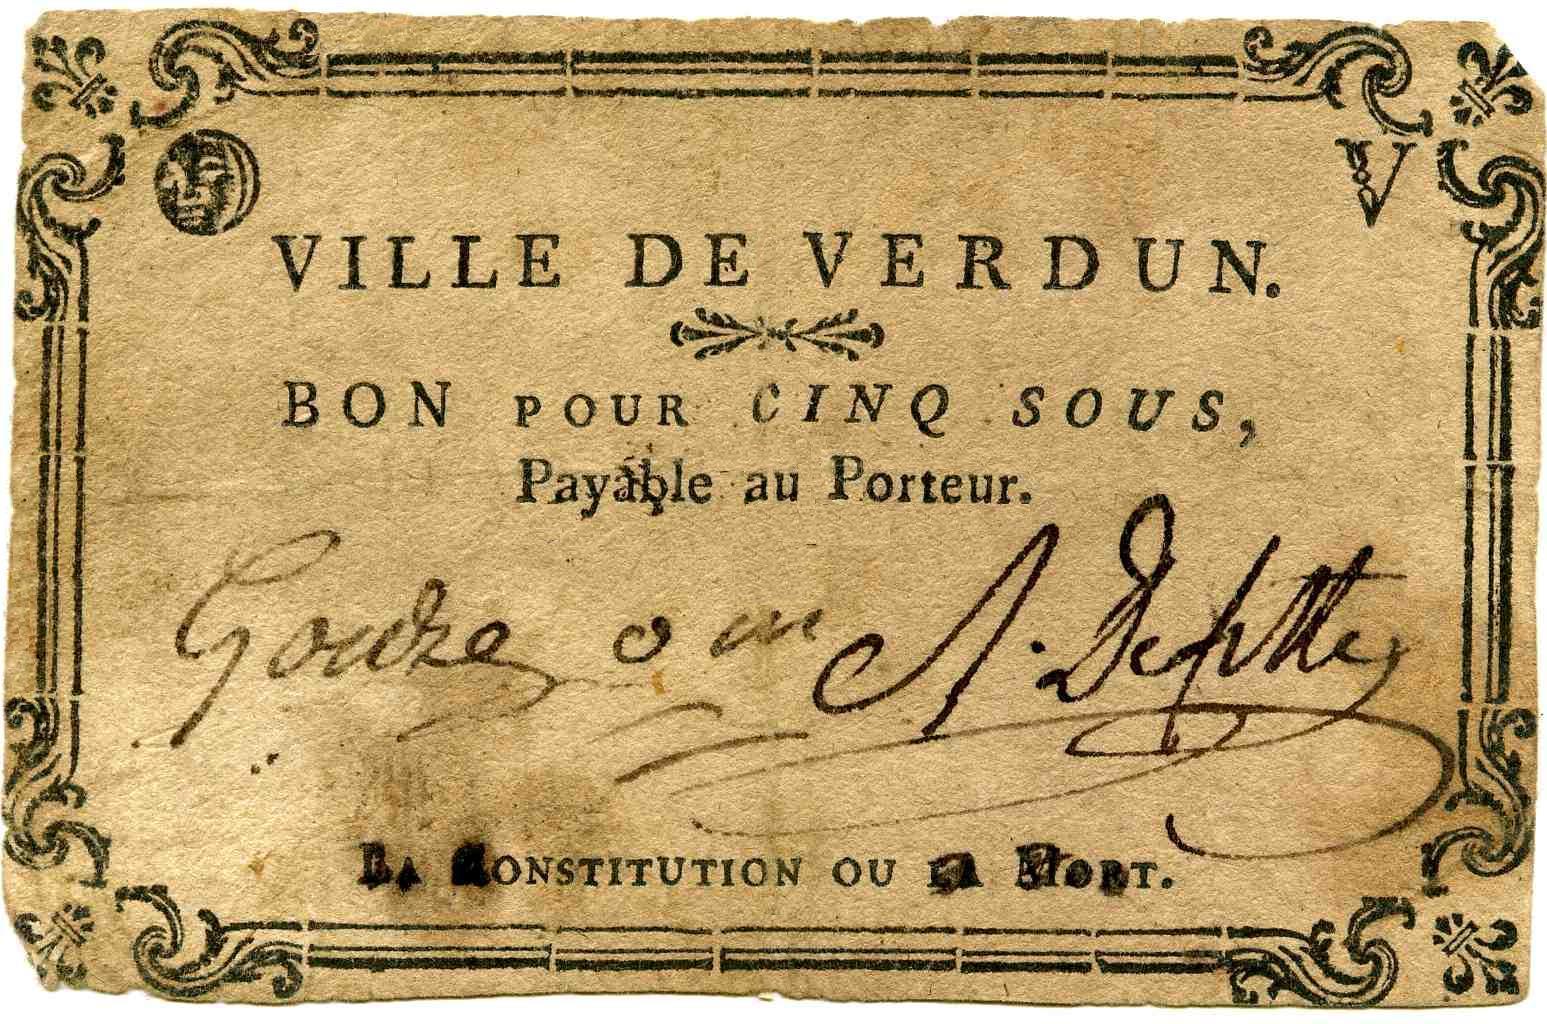 V
VILLE DE VERDUN.
BON POUR CINQ SOUS,
Payable au Porteur.
LA CONSTITUTION OU LA MORT.